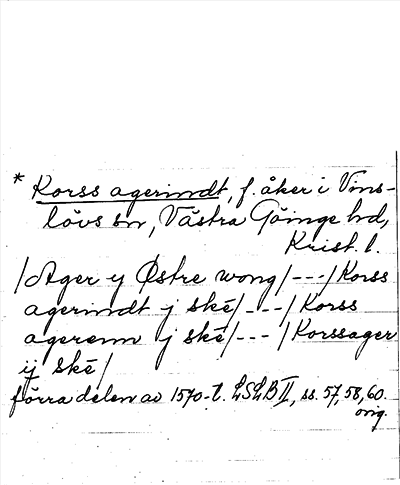 * Korss agerindt, f. åker i Vins-
lövs sn, Västra Göinge hd,
Krist. l.
/Ager y Østre wong/---/Korss
agerindt j ské/---/Korss
agerenn j ské/---/Korssager
ij ské/
förra delen av 1570-t. LSLB II, ss. 57, 58, 60.
orig.